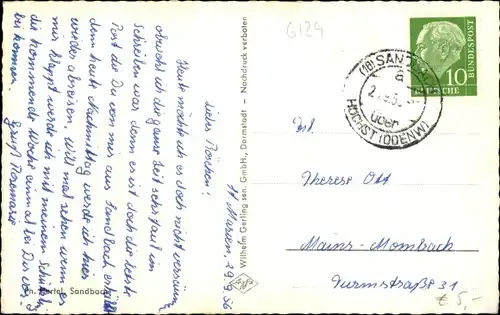 St Marien, 29.9.56
Liebes Röschen!
Heute möchte ich es doch nicht versäum
obwohl ich die ganze Zeit sehr faul im
Schreiben war denn es ist doch die letzte
Post die Du von mir aus Sandbach erhältst
denn heute Nachmittag werde ich hier
wieder abreisen, will mal sehen wenn es
mir klappt werde ich mit meinem
die kommende Woche einmal bei Dir vor-
bei kommen.
Gruß Rosemarie
Sandbach
Wilhelm Gerling sen. GmbH., Darmstadt — Nachdruck verboten
Agfa
G124
10
DEUTSCHE
BUNDESPOST
(16) SAND
a
über
HÖCHST (ODENW)
Frl.
Therese Ott
Mainz-Mombach
Turmstraße 31
€ 5,-